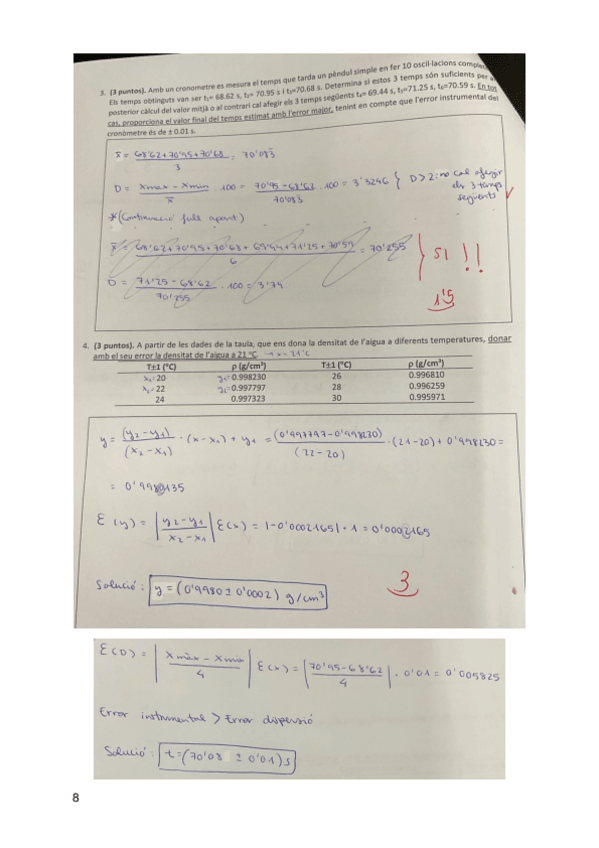 3. (3 puntos). Amb un cronometre es mesura el temps que tarda un pèndul simple en fer 10 oscil·lacions
Els temps obtinguts van ser t₁= 68.62 s, t₂= 70.95 s i t₃=70.68 s. Determina si estos 3 temps són suficients per
posterior càlcul del valor mitjà o al contrari cal afegir els 3 temps següents t₄= 69.44 s, t₅=71.25 s, t₆=70.59 s. En tot
cas, proporciona el valor final del temps estimat amb l'error major, tenint en compte que l'error instrumental del
cronòmetre és de ± 0.01 s.
x̄ = 68'62+70'95+70'68 / 3 = 70'083
D = xmax − xmin / x̄ · 100 = 70'95 − 68'62 / 70'083 · 100 = 3'3246 } D>2: no cal afegir
els 3 temps
següents
*(Continuació full apart)
x̄ = 68'62+70'95+70'68+69'44+71'25+70'59 / 6 = 70'255
SI !!
D = 71'25 − 68'62 / 70'255 · 100 = 3'74
1'5
4. (3 puntos). A partir de les dades de la taula, que ens dona la densitat de l'aigua a diferents temperatures, donar
amb el seu error la densitat de l'aigua a 21 ºC → x = 21ºC
T±1 (ºC) ρ (g/cm³) T±1 (ºC) ρ (g/cm³)
x₁= 20 y₁= 0.998230 26 0.996810
x₂= 22 y₂= 0.997797 28 0.996259
24 0.997323 30 0.995971
y = (y₂−y₁) / (x₂−x₁) · (x−x₁) + y₁ = (0'997797−0'998230) / (22−20) · (21−20) + 0'998230 =
= 0'9980135
Ɛ(y) = |y₂−y₁ / x₂−x₁| Ɛ(x) = |−0'0002165| · 1 = 0'0002165
Solució: y = (0'9980 ± 0'0002) g/cm³
3
Ɛ(D) = |xmàx − xmin / 4| Ɛ(x) = |70'95−68'62 / 4| · 0'01 = 0'005825
Error instrumental > Error dispersió
Solució: t=(70'08 ± 0'01)s
8